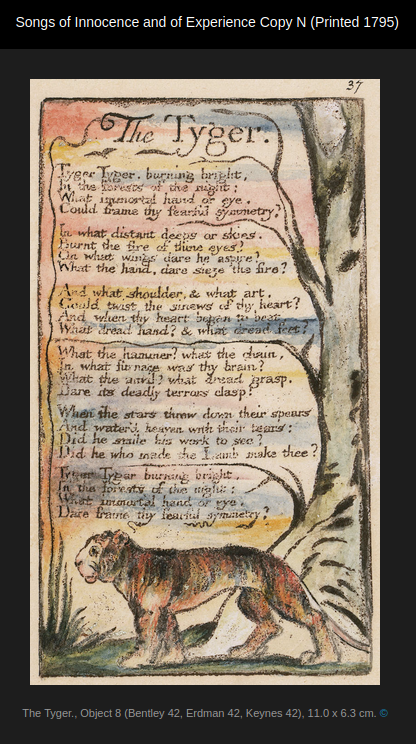 Songs of Innocence and of Experience Copy N (Printed 1795)
37
The Tyger.
Tyger Tyger. burning bright,
In the forests of the night;
What immortal hand or eye.
Could frame thy fearful symmetry?
In what distant deeps or skies.
Burnt the fire of thine eyes?
On what wings dare he aspire?
What the hand, dare sieze the fire?
And what shoulder, & what art,
Could twist the sinews of thy heart?
And when thy heart began to beat,
What dread hand? & what dread feet?
What the hammer? what the chain,
In what furnace was thy brain?
What the anvil? what dread grasp.
Dare its deadly terrors clasp?
When the stars threw down their spears
And water'd heaven with their tears:
Did he smile his work to see?
Did he who made the Lamb make thee?
Tyger Tyger burning bright,
In the forests of the night:
What immortal hand or eye.
Dare frame thy fearful symmetry?
The Tyger., Object 8 (Bentley 42, Erdman 42, Keynes 42), 11.0 x 6.3 cm. ©